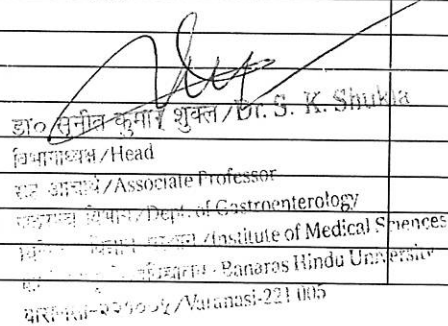 डा० सुनीत कुमार शुक्ल/Dr. S. K. Shukla
विभागाध्यक्ष/Head
सह आचार्य/Associate Professor
विभाग/Dept. of Gastroenterology
संस्थान/Institute of Medical Sciences
Banaras Hindu University
वाराणसी-२२१००५/Varanasi-221 005